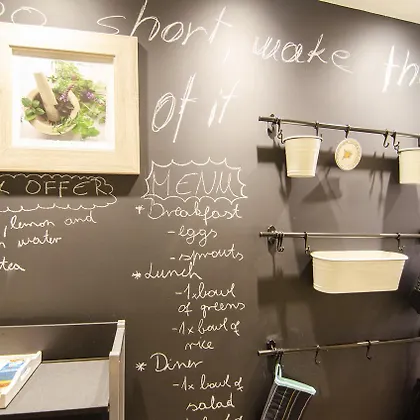 so short, make the
of it
OFFER
, lemon and
water
tea
MENU
* Breakfast
- eggs
- sprouts
* Lunch
- 1 bowl
of greens
- 1 x bowl of
rice
* Diner
- 1 x bowl of
salad